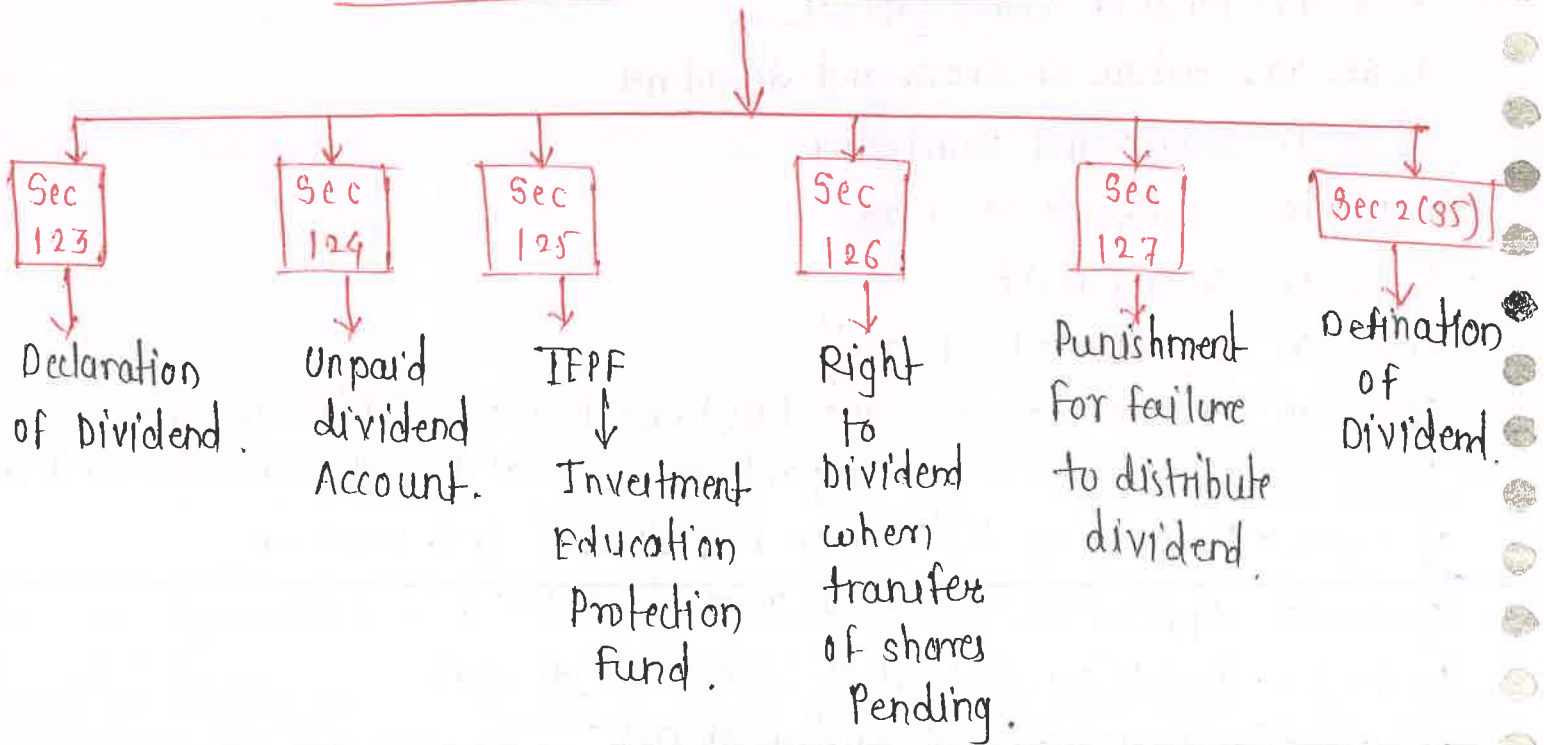 Sec
123
Declaration
of Dividend.
Sec
124
Unpaid
dividend
Account.
Sec
125
IEPF
Investment
Education
Protection
fund.
Sec
126
Right
to
Dividend
when
transfer
of shares
Pending.
Sec
127
Punishment
For failure
to distribute
dividend.
Sec 2(35)
Defination
of
Dividend.